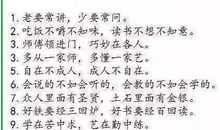 1. 老要常讲，少要常问。
2. 吃饭不嚼不知味，读书不想不知意。
3. 师傅领进门，巧妙在各人。
4. 多从一家师，多懂一家艺。
5. 自在不成人，成人不自在。
6. 会说的不如会听的，会教的不如会学的。
7. 众人里面有圣贤，土石里面有金银。
8. 好铁要经三回炉，好书要经百回读。
9. 学在苦中求，艺在勤中练。